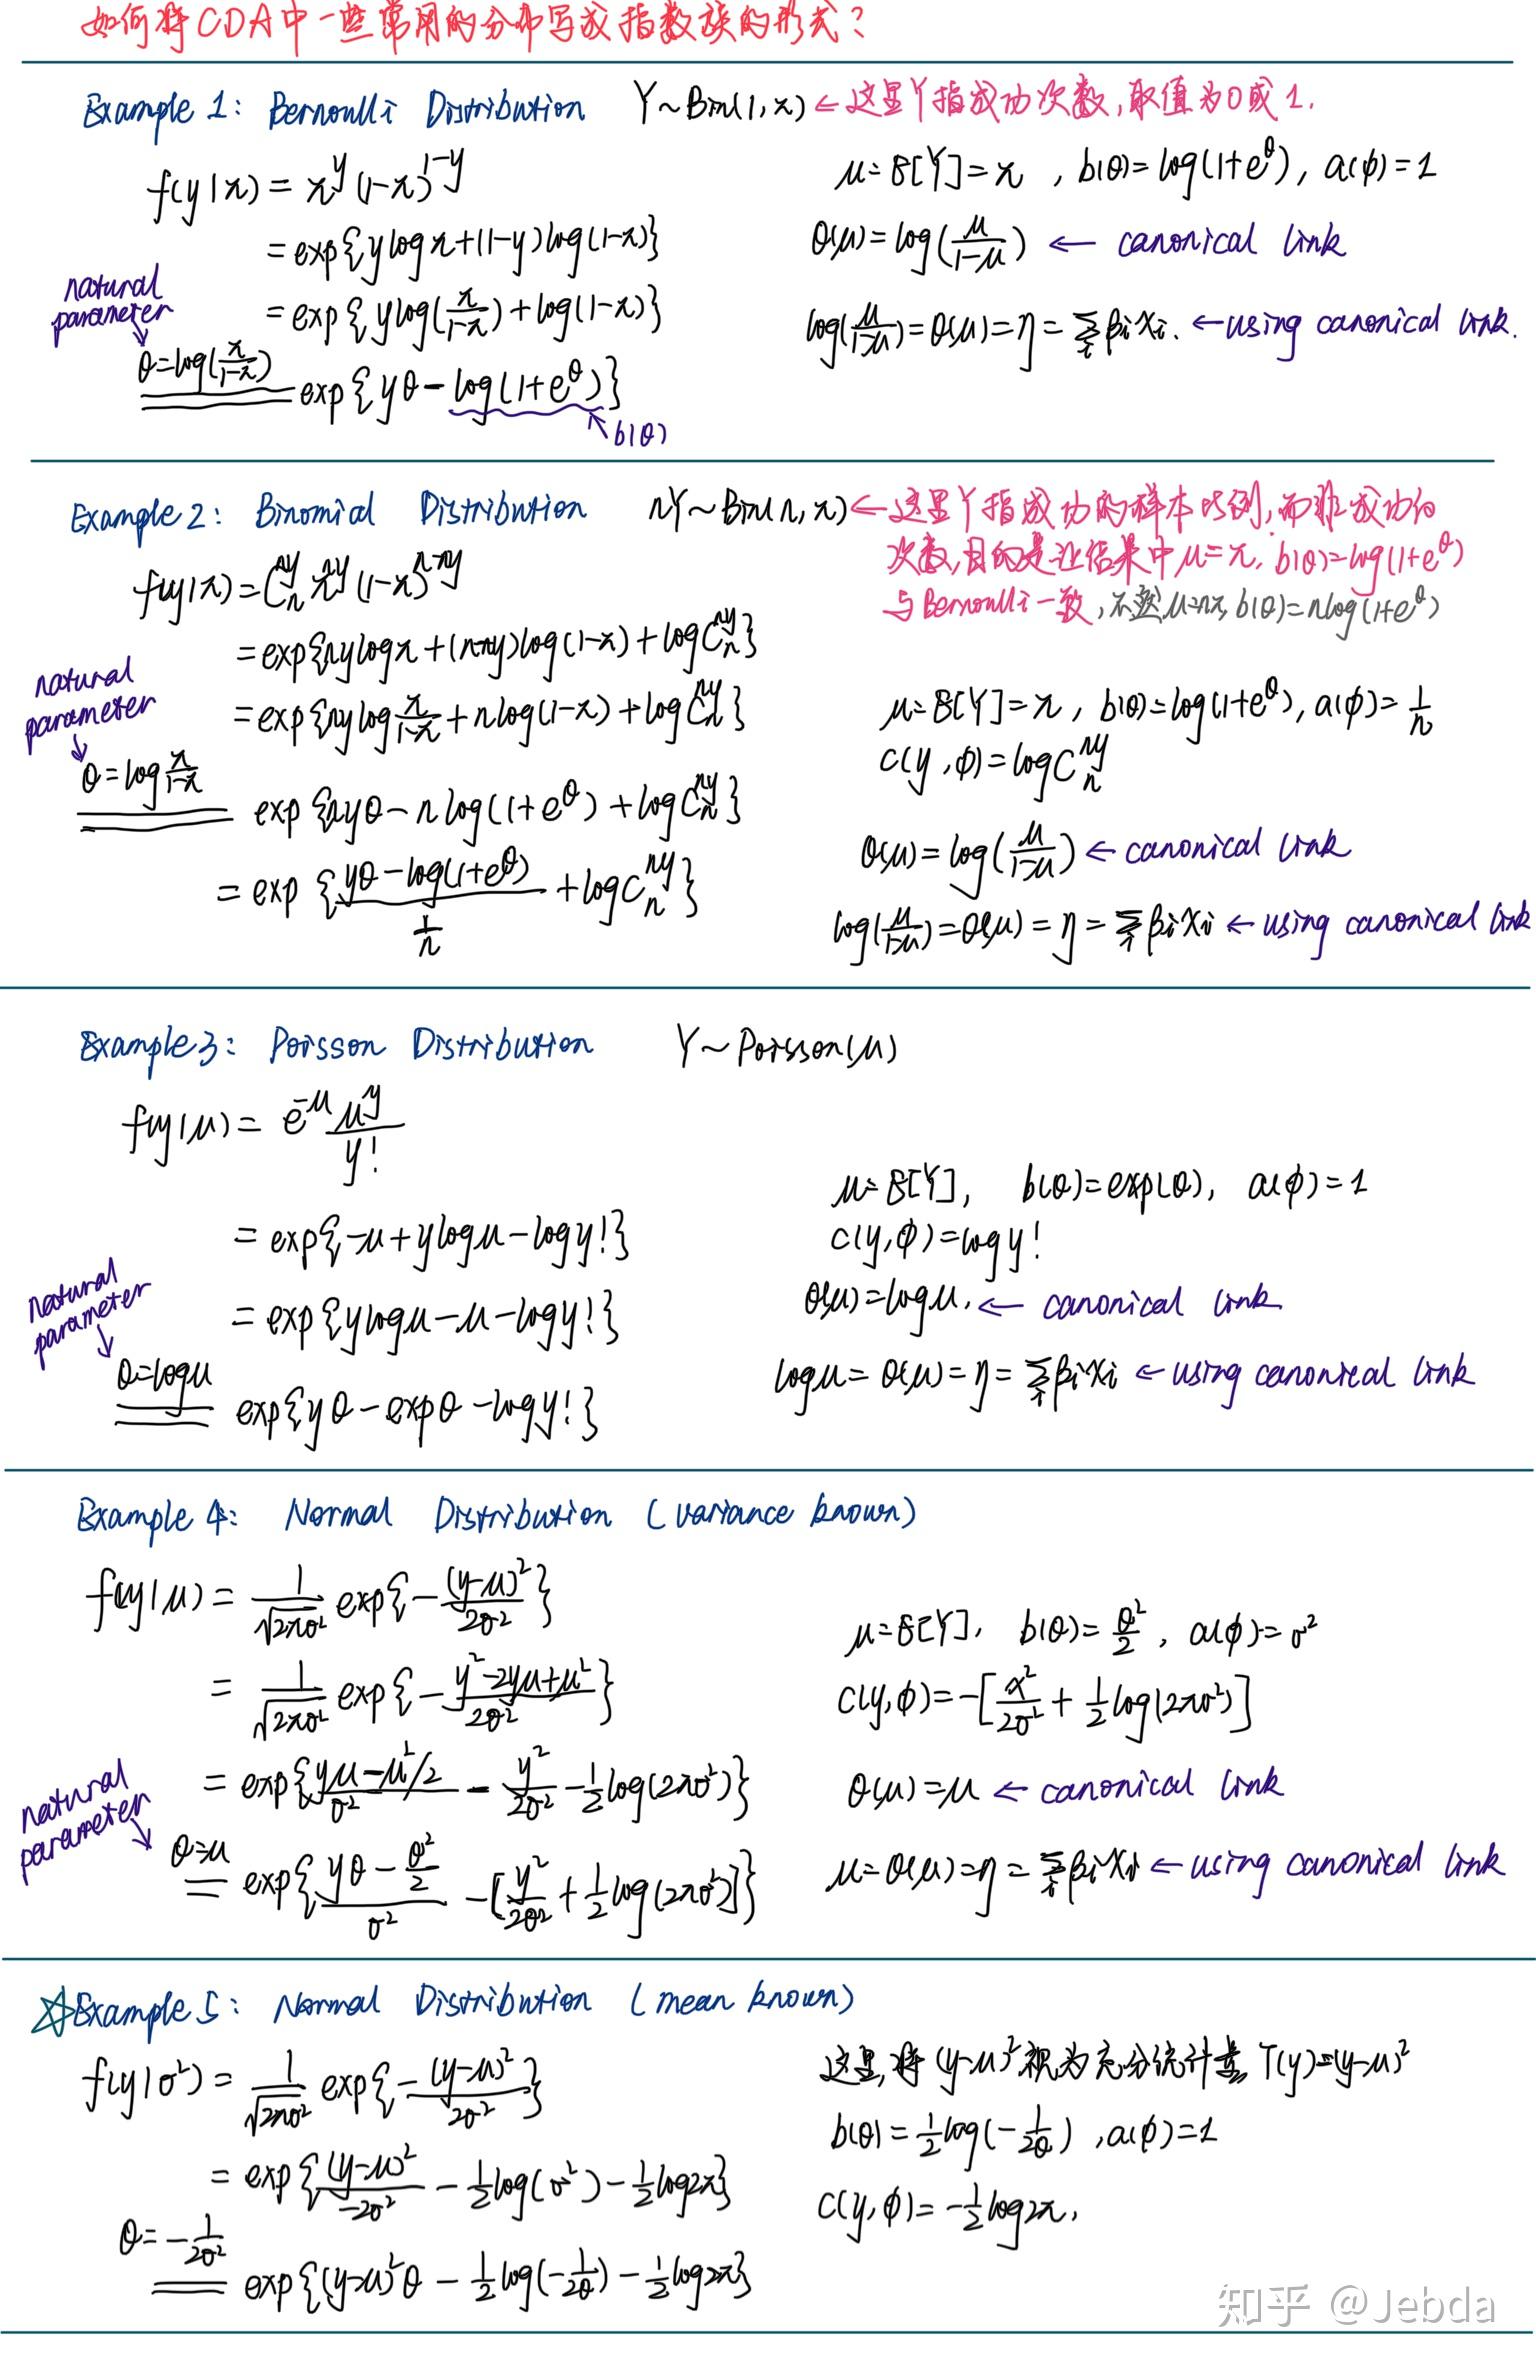 如何将CDA中一些常用的分布写成指数族的形式?
Example 1: Bernoulli Distribution Y~Bin(1,π) ← 这里Y指成功次数,取值为0或1.
f(y|π) = π^y (1-π)^{1-y}
= exp{y log π + (1-y) log(1-π)}
= exp{y log(π/(1-π)) + log(1-π)}
natural parameter
θ = log(π/(1-π))
exp{yθ - log(1+e^θ)}
b(θ)
μ = E[Y] = π , b(θ) = log(1+e^θ), a(φ) = 1
θ(μ) = log(μ/(1-μ)) ← canonical link
log(μ/(1-μ)) = θ(μ) = η = Σ_i β_i x_i. ← using canonical link.
Example 2: Binomial Distribution nY~Bin(n,π) ← 这里Y指成功的样本比例,而非成功的
次数,目的是让结果中μ=π, b(θ)=log(1+e^θ)
与Bernoulli一致,不然μ=nπ, b(θ)=nlog(1+e^θ)
f(y|π) = C_n^{ny} π^{ny} (1-π)^{n-ny}
= exp{ny log π + (n-ny) log(1-π) + log C_n^{ny}}
= exp{ny log π/(1-π) + n log(1-π) + log C_n^{ny}}
natural parameter
θ = log π/(1-π)
exp{nyθ - n log(1+e^θ) + log C_n^{ny}}
= exp{(yθ - log(1+e^θ))/(1/n) + log C_n^{ny}}
μ = E[Y] = π , b(θ) = log(1+e^θ), a(φ) = 1/n
c(y,φ) = log C_n^{ny}
θ(μ) = log(μ/(1-μ)) ← canonical link
log(μ/(1-μ)) = θ(μ) = η = Σ_i β_i x_i ← using canonical link
Example 3: Poisson Distribution Y~Poisson(μ)
f(y|μ) = e^{-μ} μ^y / y!
= exp{-μ + y log μ - log y!}
= exp{y log μ - μ - log y!}
natural parameter
θ = log μ
exp{yθ - exp θ - log y!}
μ = E[Y], b(θ) = exp(θ), a(φ) = 1
c(y,φ) = log y!
θ(μ) = log μ. ← canonical link
log μ = θ(μ) = η = Σ_i β_i x_i ← using canonical link
Example 4: Normal Distribution (variance known)
f(y|μ) = 1/√(2πσ²) exp{-(y-μ)²/(2σ²)}
= 1/√(2πσ²) exp{-(y²-2yμ+μ²)/(2σ²)}
= exp{(yμ-μ²/2)/σ² - y²/(2σ²) - 1/2 log(2πσ²)}
natural parameter
θ = μ
exp{(yθ - θ²/2)/σ² - [y²/(2σ²) + 1/2 log(2πσ²)]}
μ = E[Y], b(θ) = θ²/2, a(φ) = σ²
c(y,φ) = -[x²/(2σ²) + 1/2 log(2πσ²)]
θ(μ) = μ ← canonical link
μ = θ(μ) = η = Σ_i β_i x_i ← using canonical link
☆Example 5: Normal Distribution (mean known)
f(y|σ²) = 1/√(2πσ²) exp{-(y-μ)²/(2σ²)}
= exp{(y-μ)²/(-2σ²) - 1/2 log(σ²) - 1/2 log2π}
θ = -1/(2σ²)
exp{(y-μ)²θ - 1/2 log(-1/(2θ)) - 1/2 log2π}
这里,将(y-μ)²视为充分统计量 T(y)=(y-μ)²
b(θ) = 1/2 log(-1/(2θ)) , a(φ) = 1
c(y,φ) = -1/2 log2π,
知乎 @Jebda